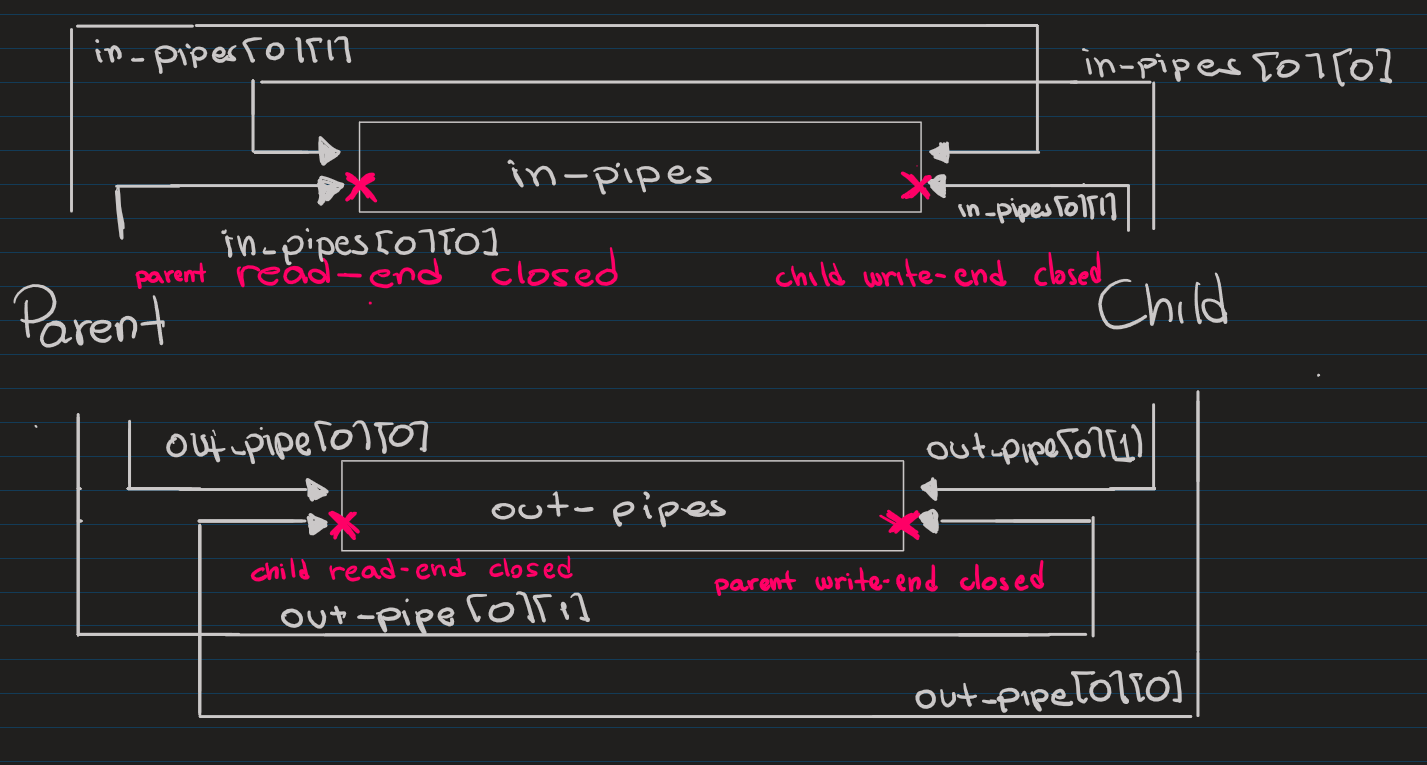 in_pipes[0][1]
in-pipes[0][0]
in-pipes
in_pipes[0][1]
in_pipes[0][0]
parent read-end closed
child write-end closed
Parent
Child
out_pipe[0][0]
out_pipe[0][1)
out-pipes
child read-end closed
parent write-end closed
out-pipe[0][1]
out_pipe[0][0]